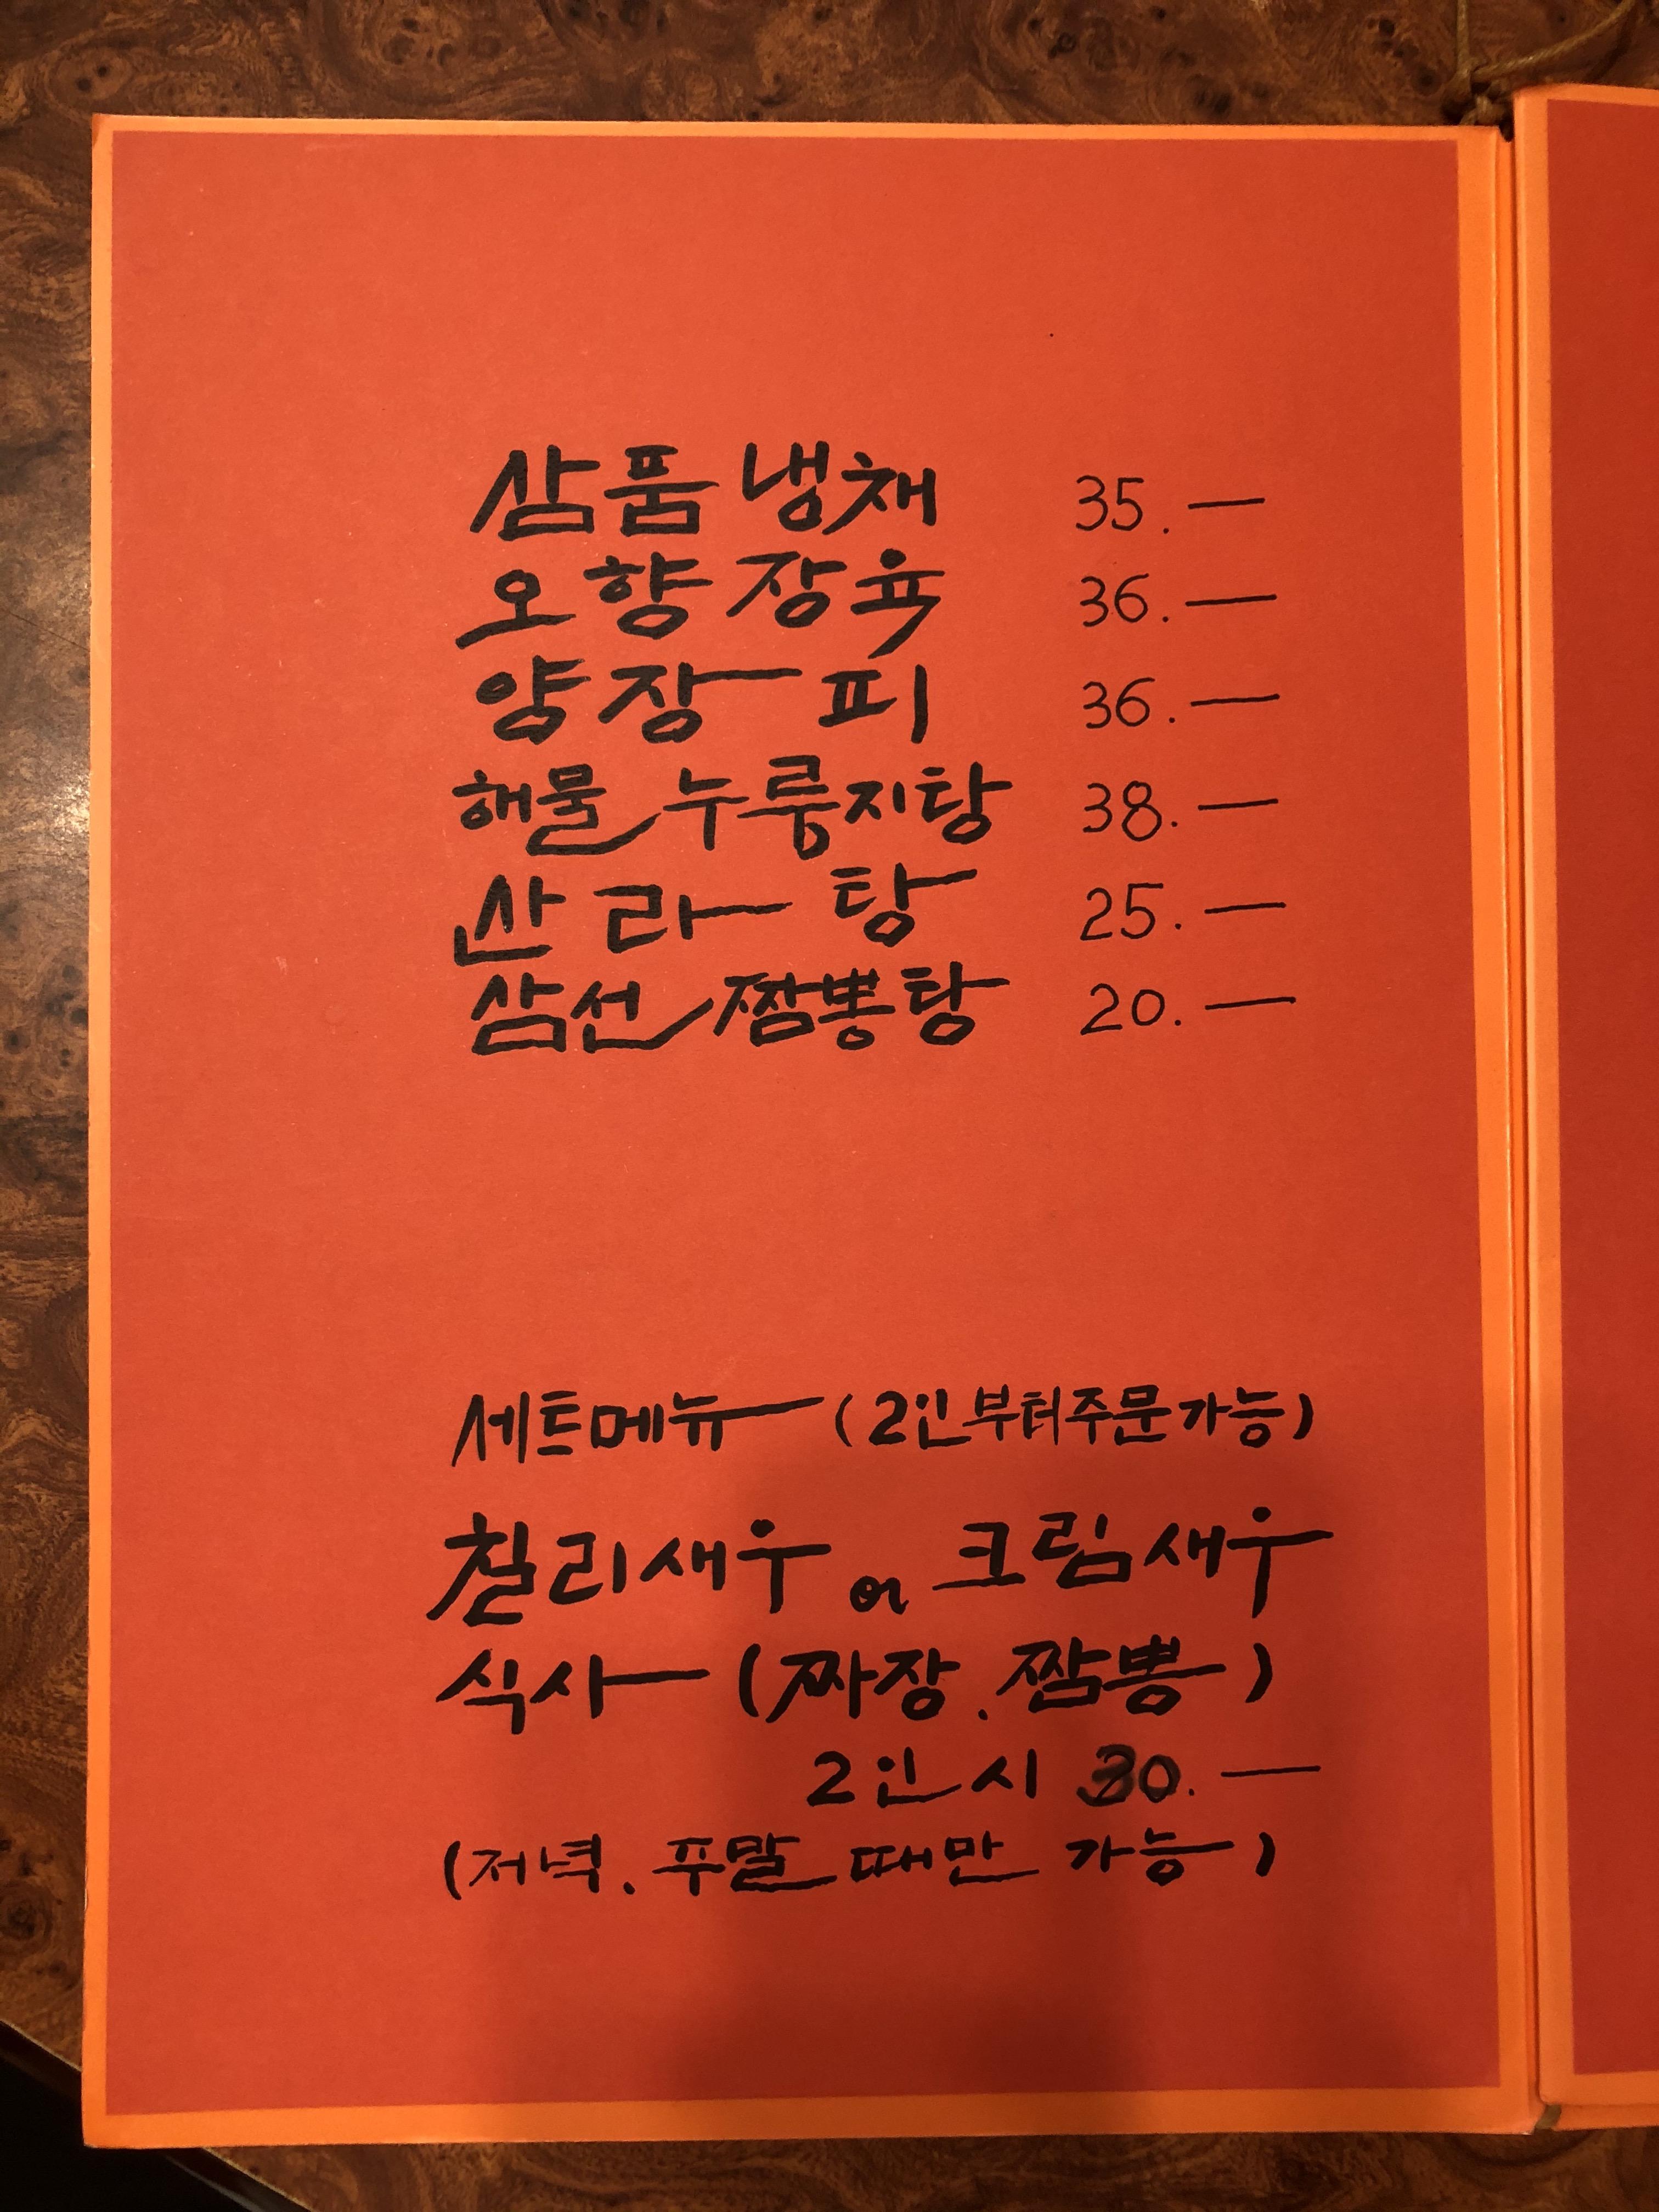 삼품냉채 35.—
오향장육 36.—
양장피 36.—
해물누룽지탕 38.—
산라탕 25.—
삼선짬뽕탕 20.—
세트메뉴 (2인부터주문가능)
칠리새우 or 크림새우
식사 (짜장.짬뽕)
2인시 30.—
(저녁.주말때만 가능)